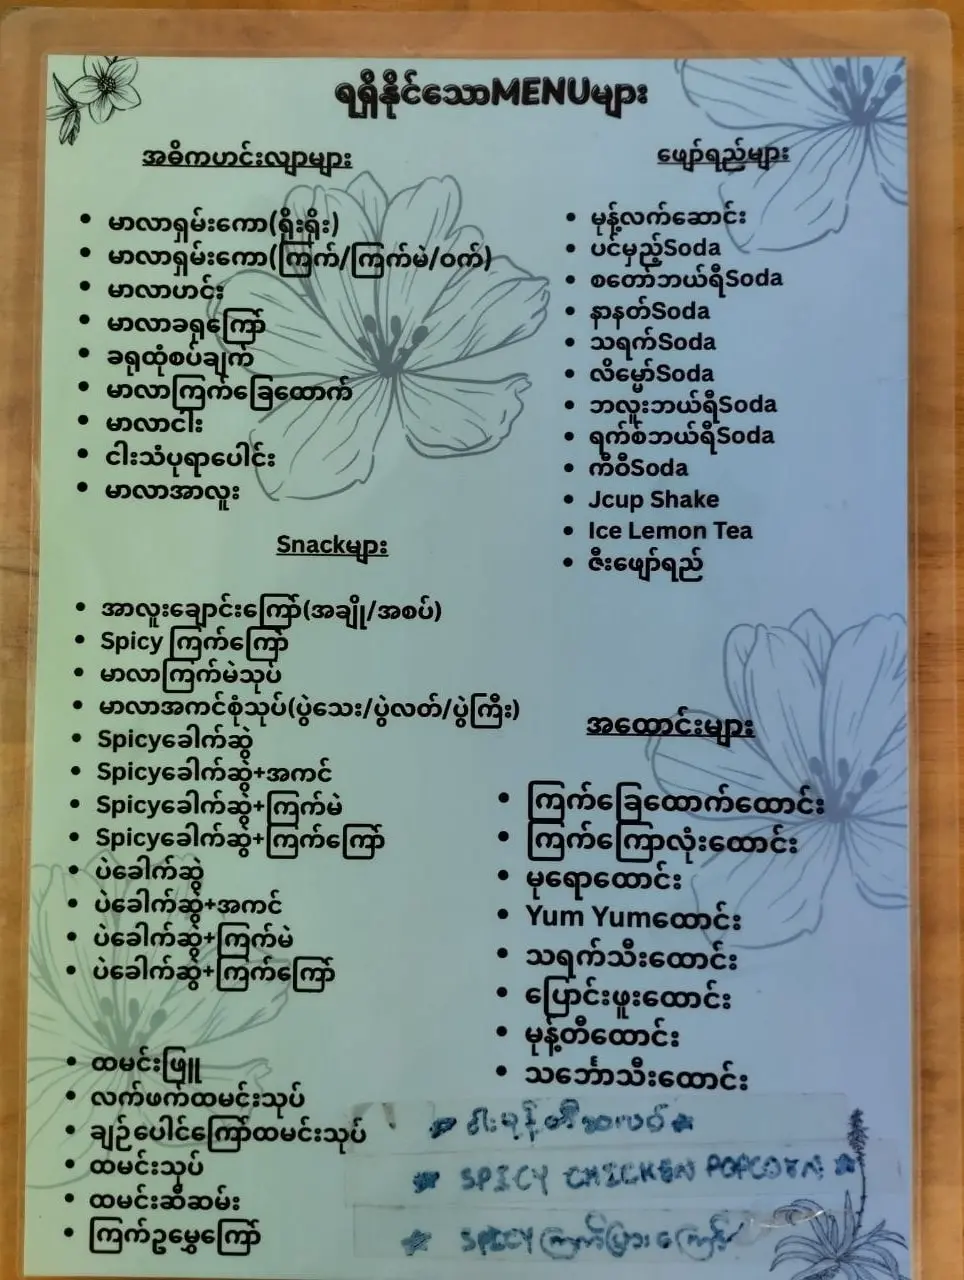 ရရှိနိုင်သောMENUများ
အဓိကဟင်းလျာများ
မာလာရှမ်းကော(ရိုးရိုး)
မာလာရှမ်းကော(ကြက်/ကြက်မဲ/ဝက်)
မာလာဟင်း
မာလာခရုကြော်
ခရုထုံစပ်ချက်
မာလာကြက်ခြေထောက်
မာလာငါး
ငါးသံပုရာပေါင်း
မာလာအာလူး
Snackများ
အာလူးချောင်းကြော်(အချို/အစပ်)
Spicy ကြက်ကြော်
မာလာကြက်မဲသုပ်
မာလာအကင်စုံသုပ်(ပွဲသေး/ပွဲလတ်/ပွဲကြီး)
Spicyခေါက်ဆွဲ
Spicyခေါက်ဆွဲ+အကင်
Spicyခေါက်ဆွဲ+ကြက်မဲ
Spicyခေါက်ဆွဲ+ကြက်ကြော်
ပဲခေါက်ဆွဲ
ပဲခေါက်ဆွဲ+အကင်
ပဲခေါက်ဆွဲ+ကြက်မဲ
ပဲခေါက်ဆွဲ+ကြက်ကြော်
ထမင်းဖြူ
လက်ဖက်ထမင်းသုပ်
ချဉ်ပေါင်ကြော်ထမင်းသုပ်
ထမင်းသုပ်
ထမင်းဆီဆမ်း
ကြက်ဥမွှေကြော်
ဖျော်ရည်များ
မုန့်လက်ဆောင်း
ပင်မှည့်Soda
စတော်ဘယ်ရီSoda
နာနတ်Soda
သရက်Soda
လိမ္မော်Soda
ဘလူးဘယ်ရီSoda
ရက်စ်ဘယ်ရီSoda
ကီဝီSoda
Jcup Shake
Ice Lemon Tea
ဇီးဖျော်ရည်
အထောင်းများ
ကြက်ခြေထောက်ထောင်း
ကြက်ကြောလုံးထောင်း
မုရောထောင်း
Yum Yumထောင်း
သရက်သီးထောင်း
ပြောင်းဖူးထောင်း
မုန့်တီထောင်း
သင်္ဘောသီးထောင်း
SPICY CHICKEN POPCORN
SPICY ကြက်မြွှာကြော်